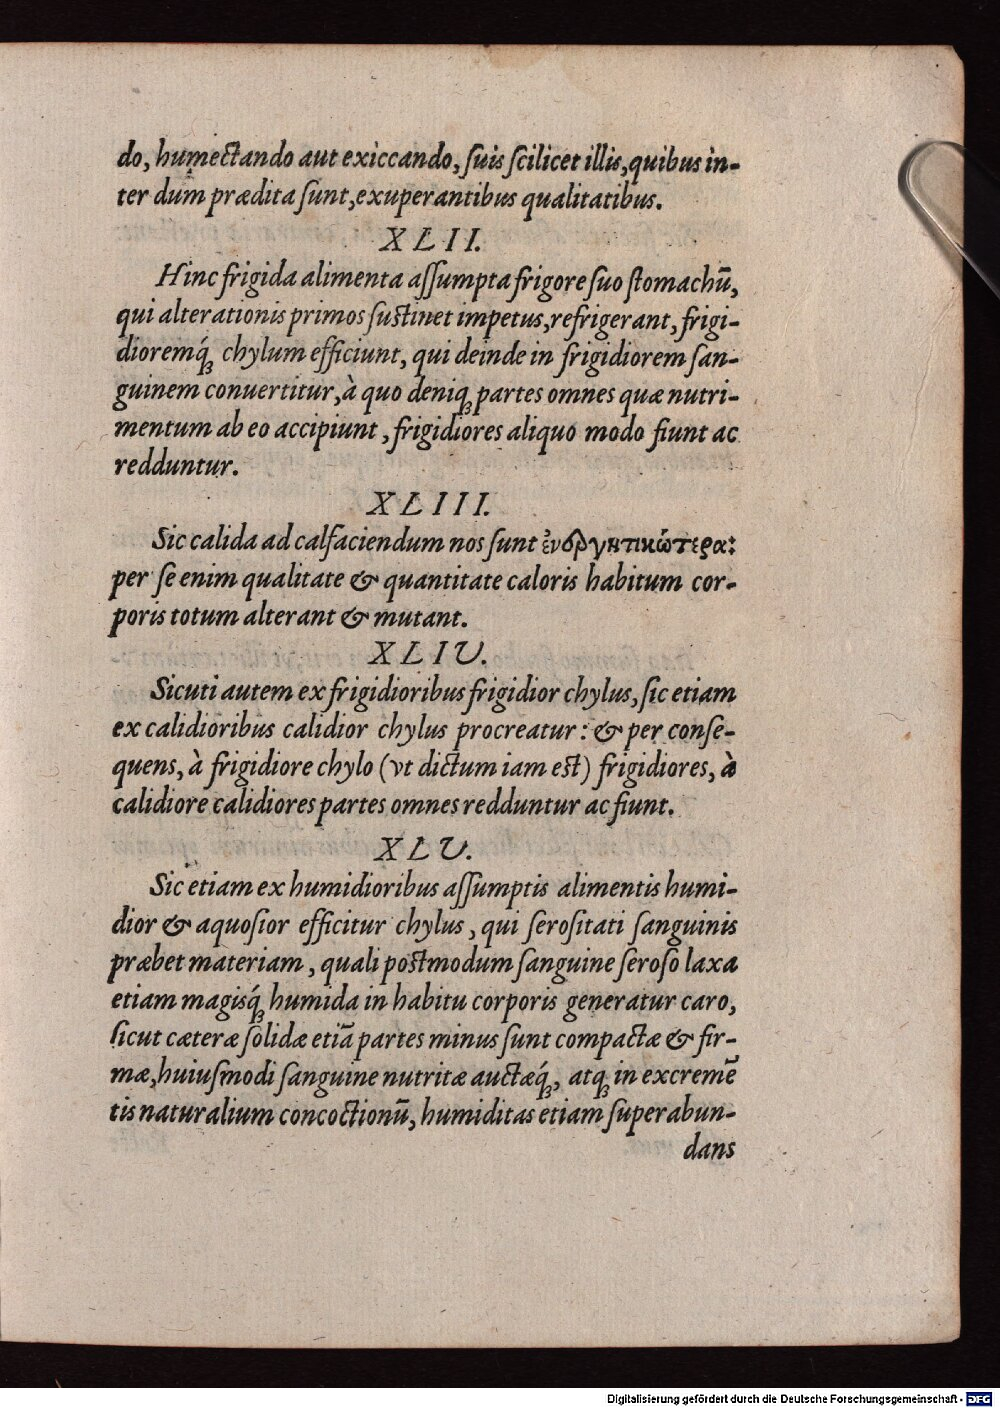 do, humectando aut exiccando, suis scilicet illis, quibus in-
ter dum prædita sunt, exuperantibus qualitatibus.
XLII.
Hinc frigida alimenta assumpta frigore suo stomachū,
qui alterationis primos sustinet impetus, refrigerant, frigi-
dioremq́ꝫ chylum efficiunt, qui deinde in frigidiorem san-
guinem conuertitur, à quo deniqꝫ partes omnes quæ nutri-
mentum ab eo accipiunt, frigidiores aliquo modo fiunt ac
redduntur.
XLIII.
Sic calida ad calfaciendum nos sunt ἐνεργητικώτερα:
per se enim qualitate & quantitate caloris habitum cor-
poris totum alterant & mutant.
XLIV.
Sicuti autem ex frigidioribus frigidior chylus, sic etiam
ex calidioribus calidior chylus procreatur: & per conse-
quens, à frigidiore chylo (vt dictum iam est) frigidiores, à
calidiore calidiores partes omnes redduntur ac fiunt.
XLV.
Sic etiam ex humidioribus assumptis alimentis humi-
dior & aquosior efficitur chylus, qui serositati sanguinis
præbet materiam, quali postmodum sanguine seroso laxa
etiam magisq́ꝫ humida in habitu corporis generatur caro,
sicut cæteræ solidæ etiā partes minus sunt compactæ & fir-
mæ, huiusmodi sanguine nutritæ auctæq́ꝫ, atqꝫ in excremē
tis naturalium concoctionū, humiditas etiam superabun-
dans
Digitalisierung gefördert durch die Deutsche Forschungsgemeinschaft - DFG